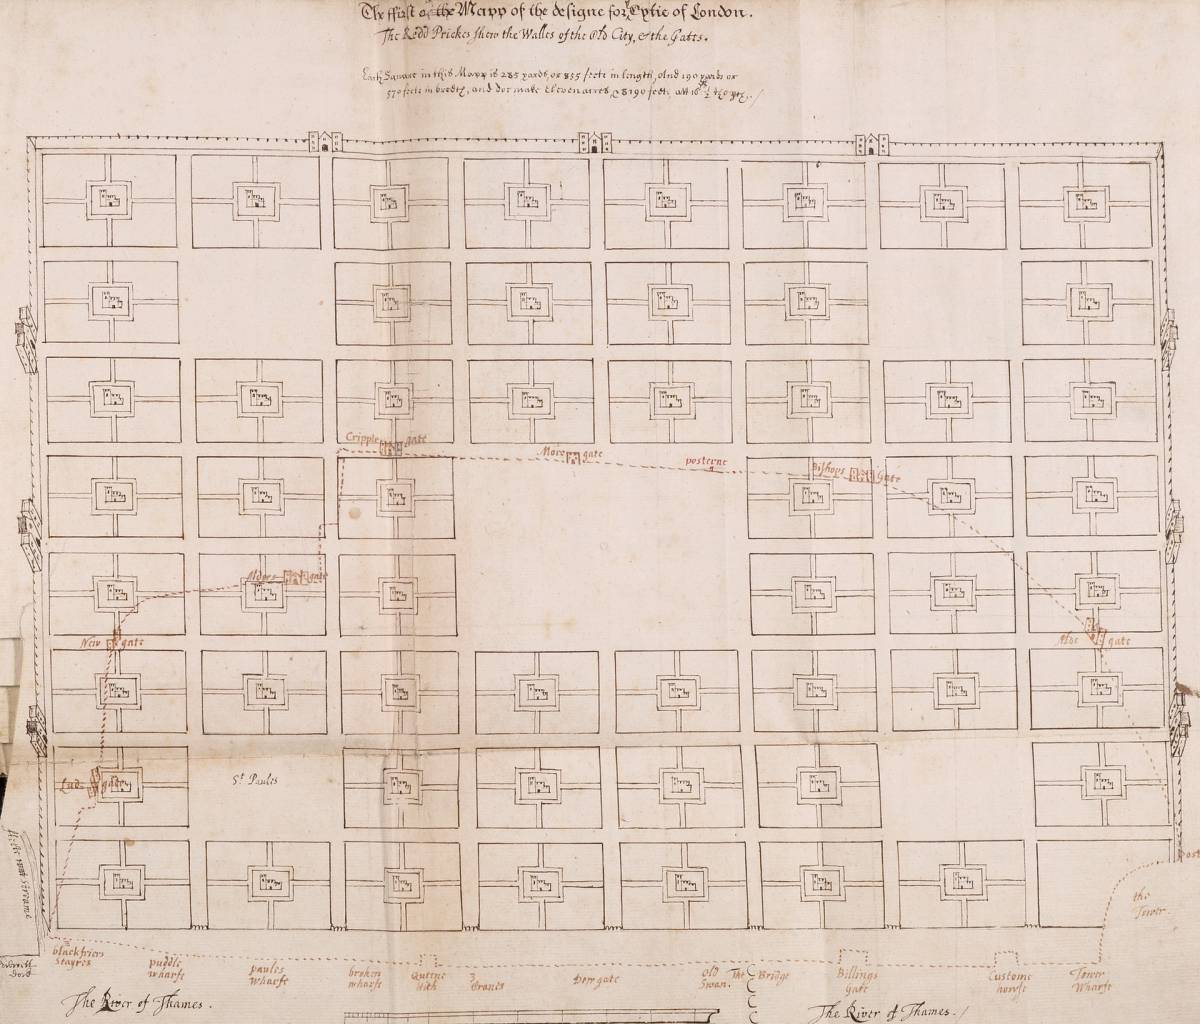 The ffirst of the Mapp of the designe for ye Cytie of London.
The Redd Prickes shew the Walles of the old City, & the Gates.
Each Square in this Mapp is 285 yards, or 855 feete in length, And 190 yards or
570 feete in bredth, and doe make Eleven acres, 8190 feete att 16 1/2
Cripple gate
More gate
posterne
Bishops Gate
Alders gate
New gate
Alde gate
Lud gate
St Paules
the Tower.
blackfriers stayres
puddle wharfe
paules wharfe
broken wharfe
Queene hith
3 Cranes
Dowgate
old Swan.
The Bridge
Billings Gate
Custome howse
Tower Wharfe
The River of Thames.
The River of Thames.